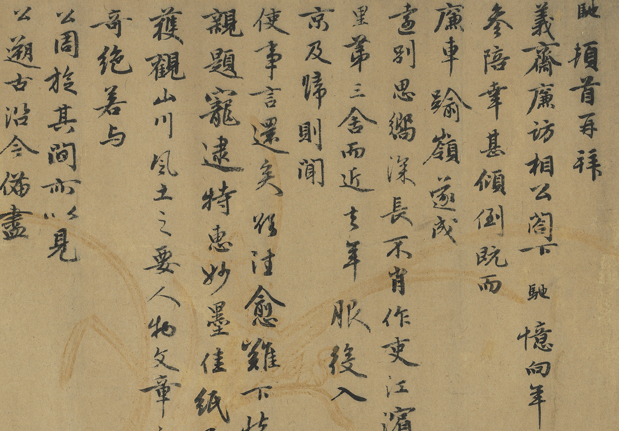 馳頓首再拜
義齋廉訪相公閣下馳憶向年
參陪幸甚傾倒既而
廉車踰嶺遂成
遠別思嚮深長不肖作吏江濱
里第三舍而近去年服後入
京及歸則聞
使事言還矣往愈難下
親題寵逮特惠妙墨佳紙
獲觀山川風土之要人物文章
奇絶若与
公周旋其間亦以見
公遡古沿今備盡